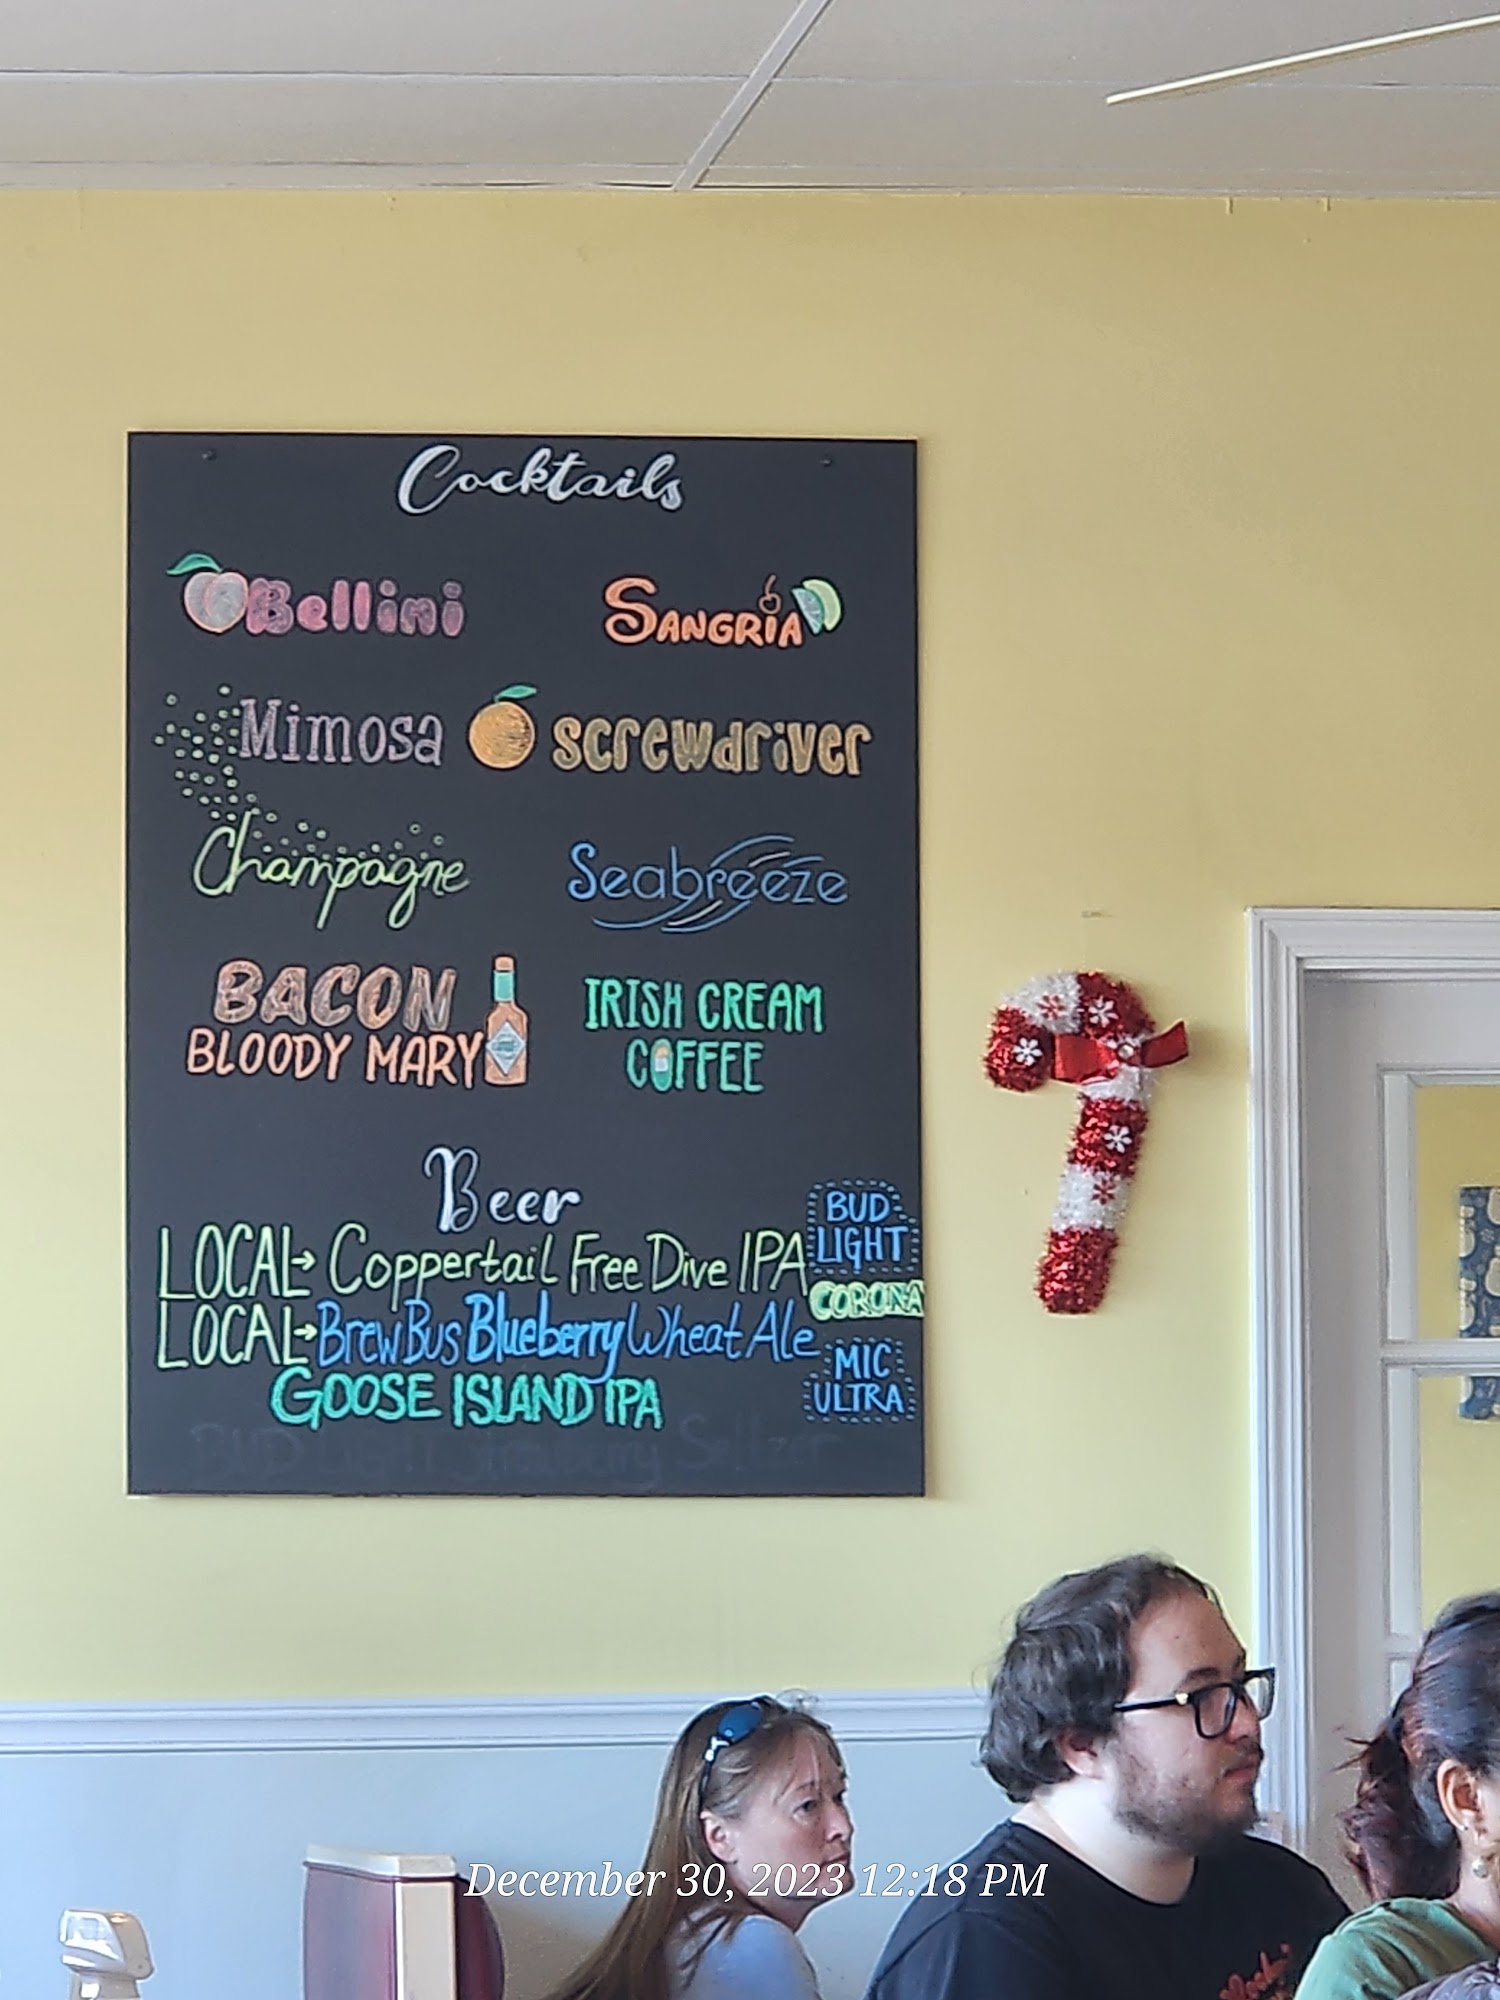 Cocktails
Bellini
SANGRIA
Mimosa
screwdriver
Champagne
Seabreeze
BACON
BLOODY MARY
IRISH CREAM
COFFEE
Beer
LOCAL→ Coppertail Free Dive IPA
LOCAL→ Brew Bus Blueberry Wheat Ale
GOOSE ISLAND IPA
BUD Light Strawberry Seltzer
BUD
LIGHT
CORONA
MIC
ULTRA
December 30, 2023 12:18 PM